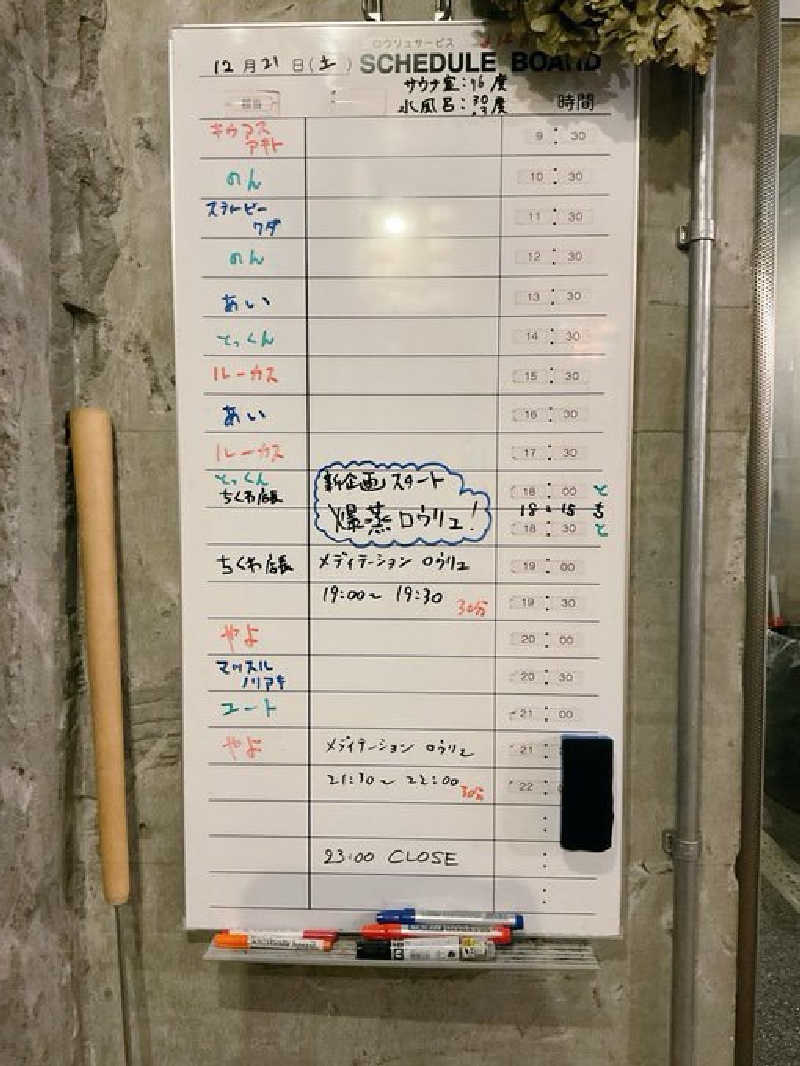 ロウリュサービス
12月21日(土) SCHEDULE BOARD
サウナ室:96度
水風呂: 度
時間
キウアス
アキト
9:30
のん 10:30
スティービー
ワダ
11:30
のん 12:30
あい 13:30
とっくん 14:30
ルーカス 15:30
あい 16:30
ルーカス 17:30
とっくん 新企画スタート 18:00 と
ちくわ店長 爆蒸ロウリュ! 18:15 ち
18:30 と
ちくわ店長 メディテーション ロウリュ 19:00
19:00〜 19:30 30分 19:30
やよ 20:00
マッスル
ノリアキ
20:30
コート 21:00
やよ メディテーション ロウリュ 21:
21:30〜 22:00 30分 22:
23:00 CLOSE